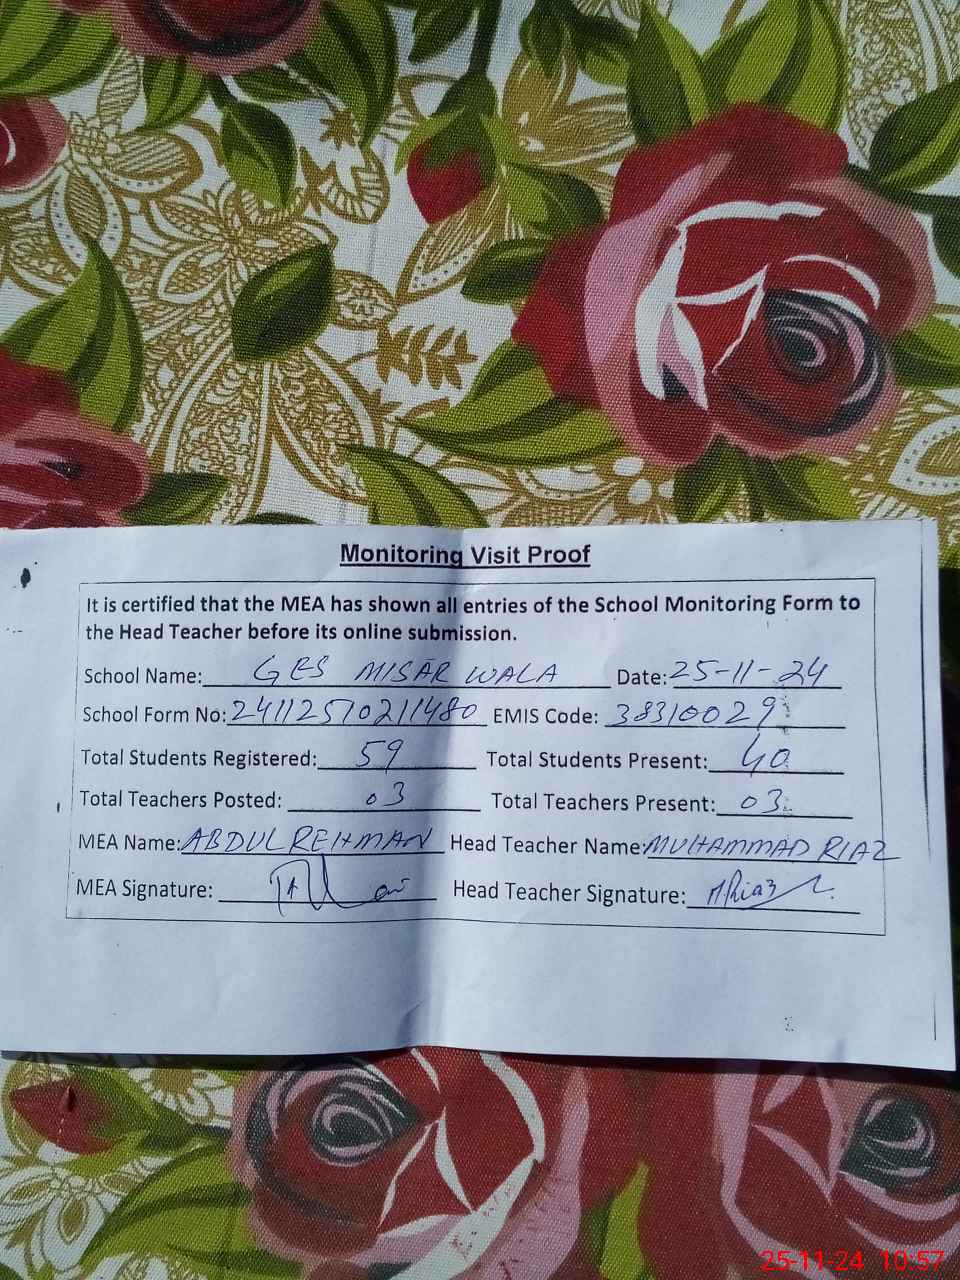 Monitoring Visit Proof
It is certified that the MEA has shown all entries of the School Monitoring Form to
the Head Teacher before its online submission.
School Name: GES MISAR WALA Date: 25-11-24
School Form No: 24112510211480 EMIS Code: 38310029
Total Students Registered: 59 Total Students Present: 40
Total Teachers Posted: 03 Total Teachers Present: 03
MEA Name: ABDUL REHMAN Head Teacher Name: MUHAMMAD RIAZ
MEA Signature: Head Teacher Signature: MRiaz
25-11-24 10:57